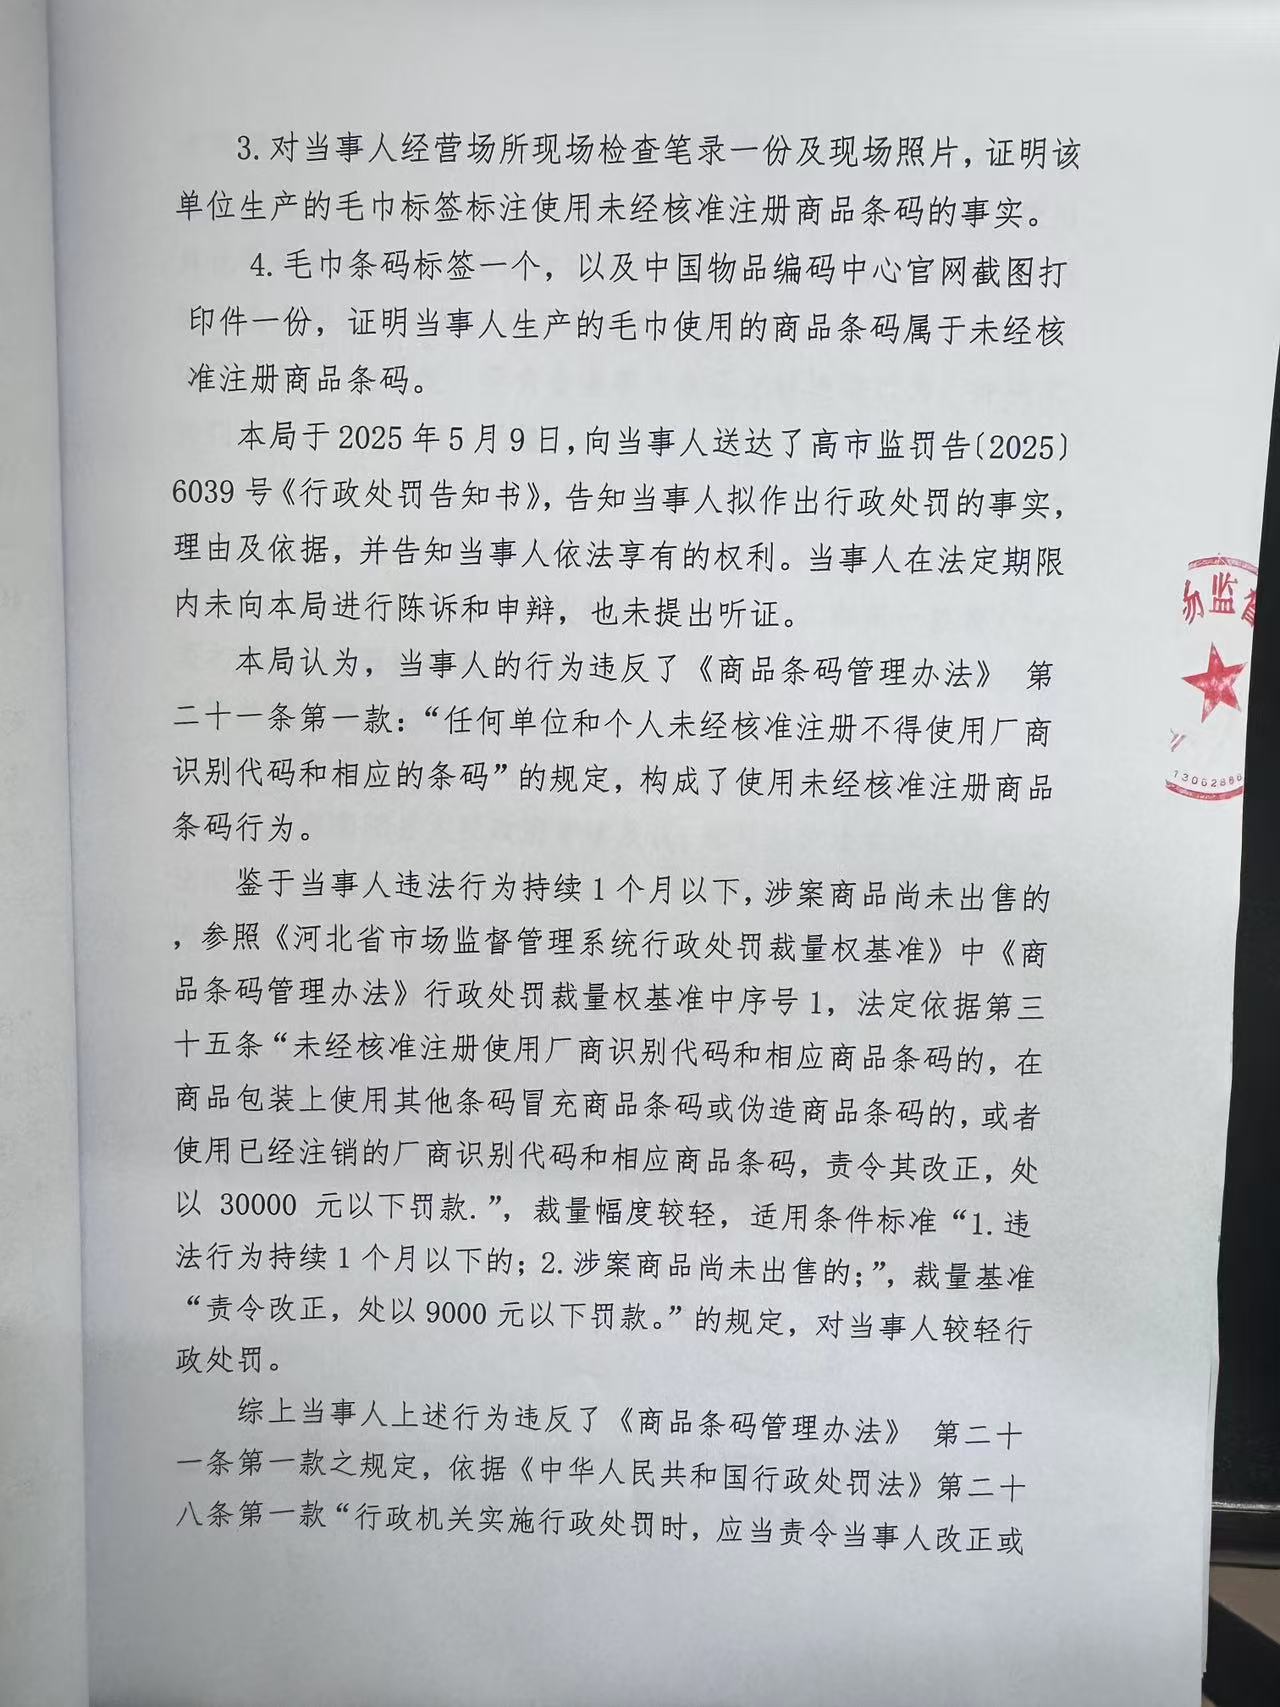 3.对当事人经营场所现场检查笔录一份及现场照片，证明该
单位生产的毛巾标签标注使用未经核准注册商品条码的事实。
4.毛巾条码标签一个，以及中国物品编码中心官网截图打
印件一份，证明当事人生产的毛巾使用的商品条码属于未经核
准注册商品条码。
本局于2025年5月9日，向当事人送达了高市监罚告〔2025〕
6039号《行政处罚告知书》，告知当事人拟作出行政处罚的事实，
理由及依据，并告知当事人依法享有的权利。当事人在法定期限
内未向本局进行陈诉和申辩，也未提出听证。
本局认为，当事人的行为违反了《商品条码管理办法》 第
二十一条第一款：“任何单位和个人未经核准注册不得使用厂商
识别代码和相应的条码”的规定，构成了使用未经核准注册商品
条码行为。
鉴于当事人违法行为持续1个月以下，涉案商品尚未出售的
，参照《河北省市场监督管理系统行政处罚裁量权基准》中《商
品条码管理办法》行政处罚裁量权基准中序号1，法定依据第三
十五条“未经核准注册使用厂商识别代码和相应商品条码的，在
商品包装上使用其他条码冒充商品条码或伪造商品条码的，或者
使用已经注销的厂商识别代码和相应商品条码，责令其改正，处
以 30000 元以下罚款.”，裁量幅度较轻，适用条件标准“1.违
法行为持续1个月以下的；2.涉案商品尚未出售的；”，裁量基准
“责令改正，处以9000元以下罚款。”的规定，对当事人较轻行
政处罚。
综上当事人上述行为违反了《商品条码管理办法》 第二十
一条第一款之规定，依据《中华人民共和国行政处罚法》第二十
八条第一款“行政机关实施行政处罚时，应当责令当事人改正或
监
13062886